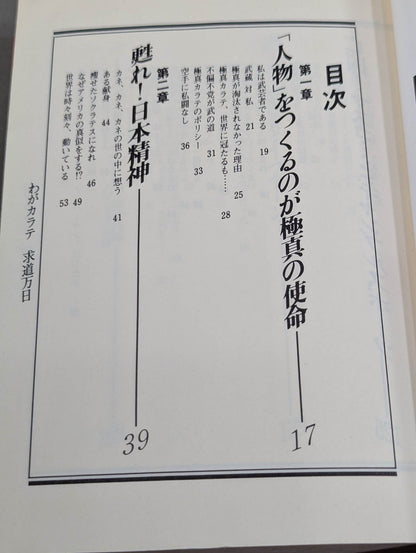 目次
第一章
「人物」をつくるのが極真の使命 17
私は武芸者である 19
武蔵対私 21
極真が淘汰されなかった理由 25
極真カラテ、世界に冠たるも…… 28
不偏不党が武の道 31
極真カラテのポリシー 33
空手に私闘なし 36
第二章
甦れ!日本精神 39
カネ、カネ、カネの世の中に想う 41
ある献身 44
痩せたソクラテスになれ 46
なぜアメリカの真似をする!? 49
世界は時々刻々、動いている 53
わがカラテ 求道万日